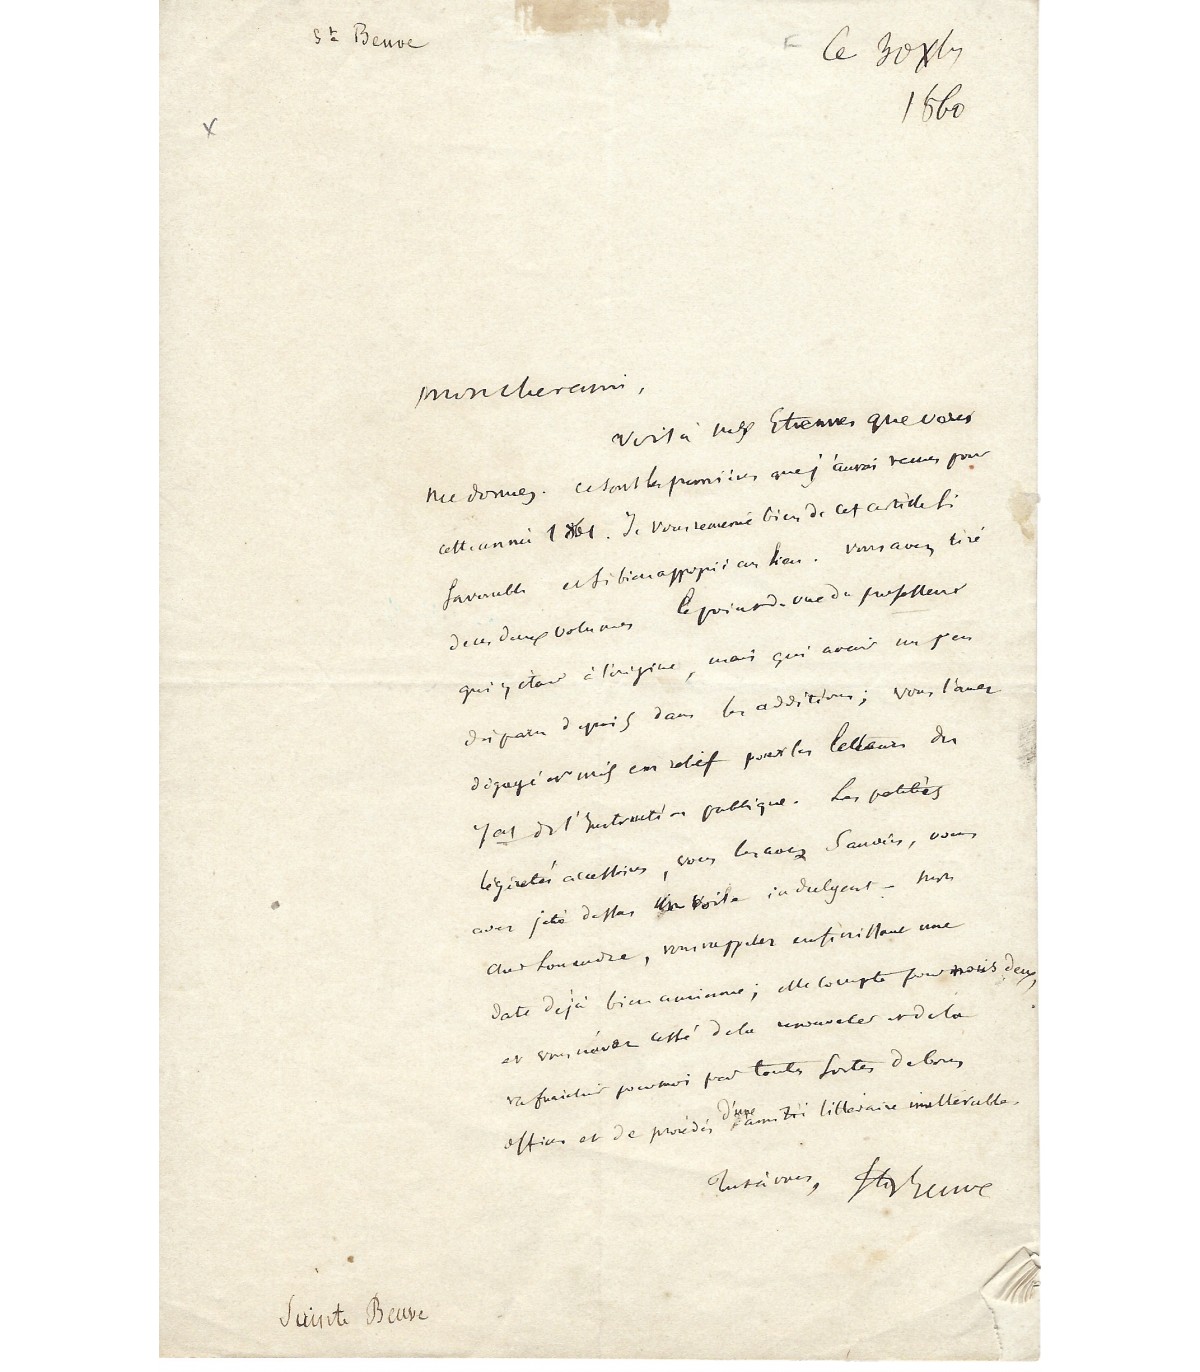 Ste Beuve
Ce 30 Xbre
1860
Mon cher ami,
voilà mes Etrennes que vous
me donnez. Ce sont les premières que j'aurai reçues pour
cette année 1861. Je vous remercie bien de cet article si
favorable et si bien approprié au lieu. vous avez tiré
de ces deux volumes le point de vue du professeur
qui y était à l'origine, mais qui avait un peu
disparu depuis dans les additions; vous l'avez
dégagé et mis en relief pour les lecteurs du
Jal de l'Instruction publique. Les petites
légèretés accessoires, vous les avez sauvées, vous
avez jeté dessus un voile indulgent – Mon
cher Louandre, vous rappelez en finissant une
date déjà bien ancienne; elle compte pour nous deux,
et vous n'avez cessé de la renouveler et de la
rafraichir pour moi par toutes sortes de bons
offices et de procédés d'une amitié littéraire inaltérable.
Tout à vous, Ste Beuve
Sainte Beuve